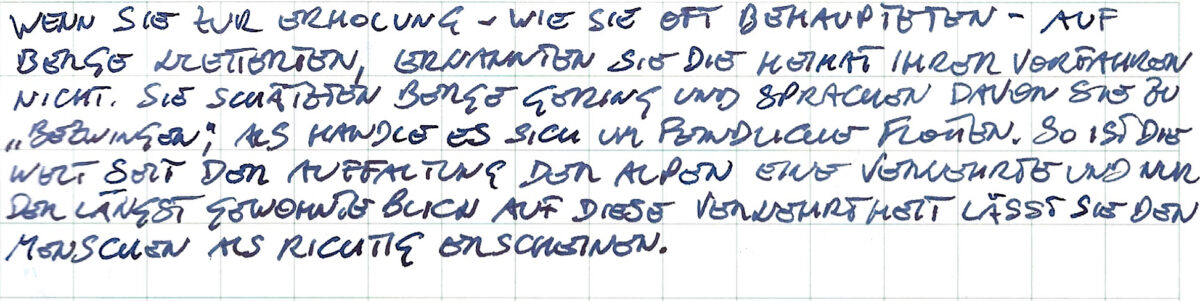 WENN SIE ZUR ERHOLUNG - WIE SIE OFT BEHAUPTETEN - AUF
BERGE KLETTERTEN, ERKANNTEN SIE DIE HEIMAT IHRER VORFAHREN
NICHT. SIE SCHÄTZTEN BERGE GERING UND SPRACHEN DAVON SIE ZU
„BEZWINGEN“, ALS HANDLE ES SICH UM FEINDLICHE FLOTTEN. SO IST DIE
WELT SEIT DER AUFFALTUNG DER ALPEN EINE VERKEHRTE UND NUR
DER LÄNGST GEWOHNTE BLICK AUF DIESE VERKEHRTHEIT LÄSST SIE DEN
MENSCHEN ALS RICHTIG ERSCHEINEN.